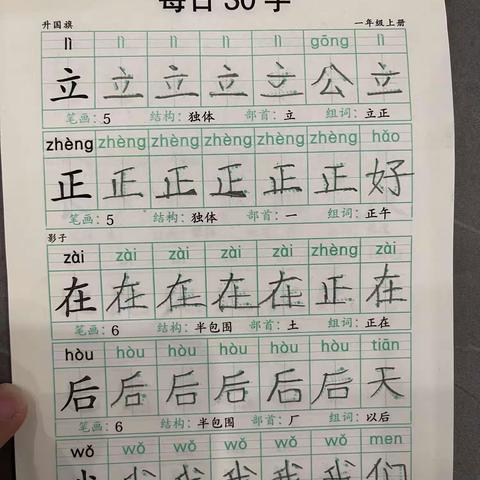 每日30字
升国旗 一年级上册
lì lì lì lì lì gōng lì
立 立 立 立 立 公 立
笔画：5 结构：独体 部首：立 组词：立正
zhèng zhèng zhèng zhèng zhèng zhèng hǎo
正 正 正 正 正 正 好
笔画：5 结构：独体 部首：一 组词：正午
影子
zài zài zài zài zài zhèng zài
在 在 在 在 在 正 在
笔画：6 结构：半包围 部首：土 组词：正在
hòu hòu hòu hòu hòu hòu tiān
后 后 后 后 后 后 天
笔画：6 结构：半包围 部首：厂 组词：以后
wǒ wǒ wǒ wǒ wǒ wǒ men
我 我 我 我 我 我 们